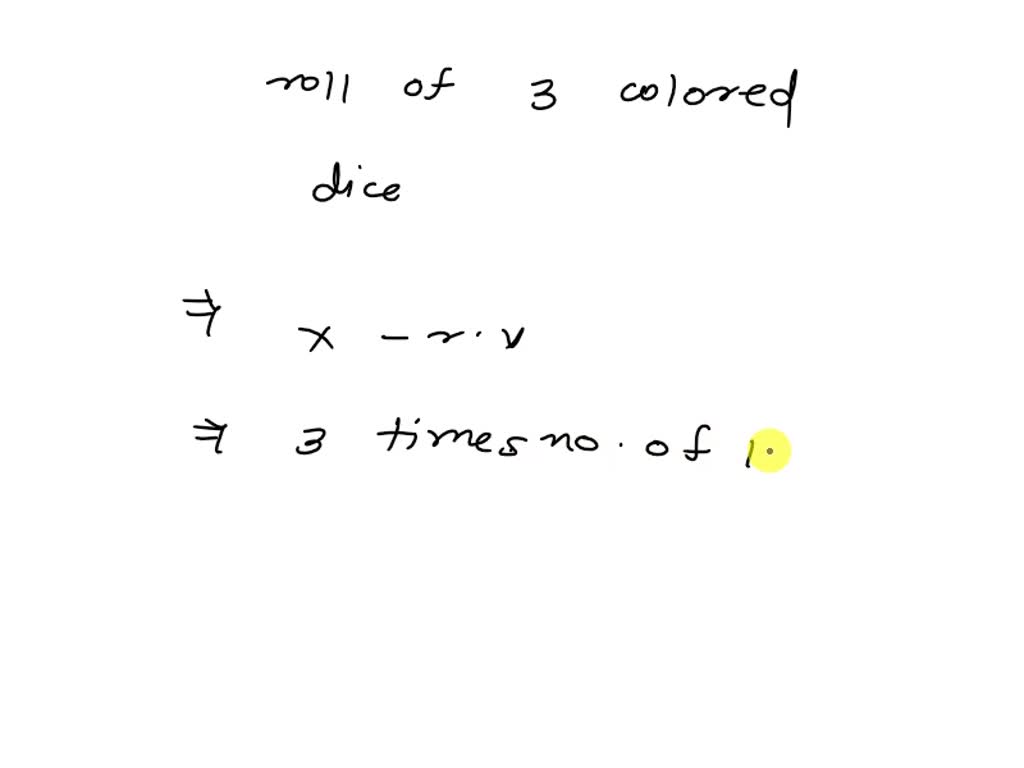 roll of 3 colored
dice
⇒ x - r.v
⇒ 3 times no. of